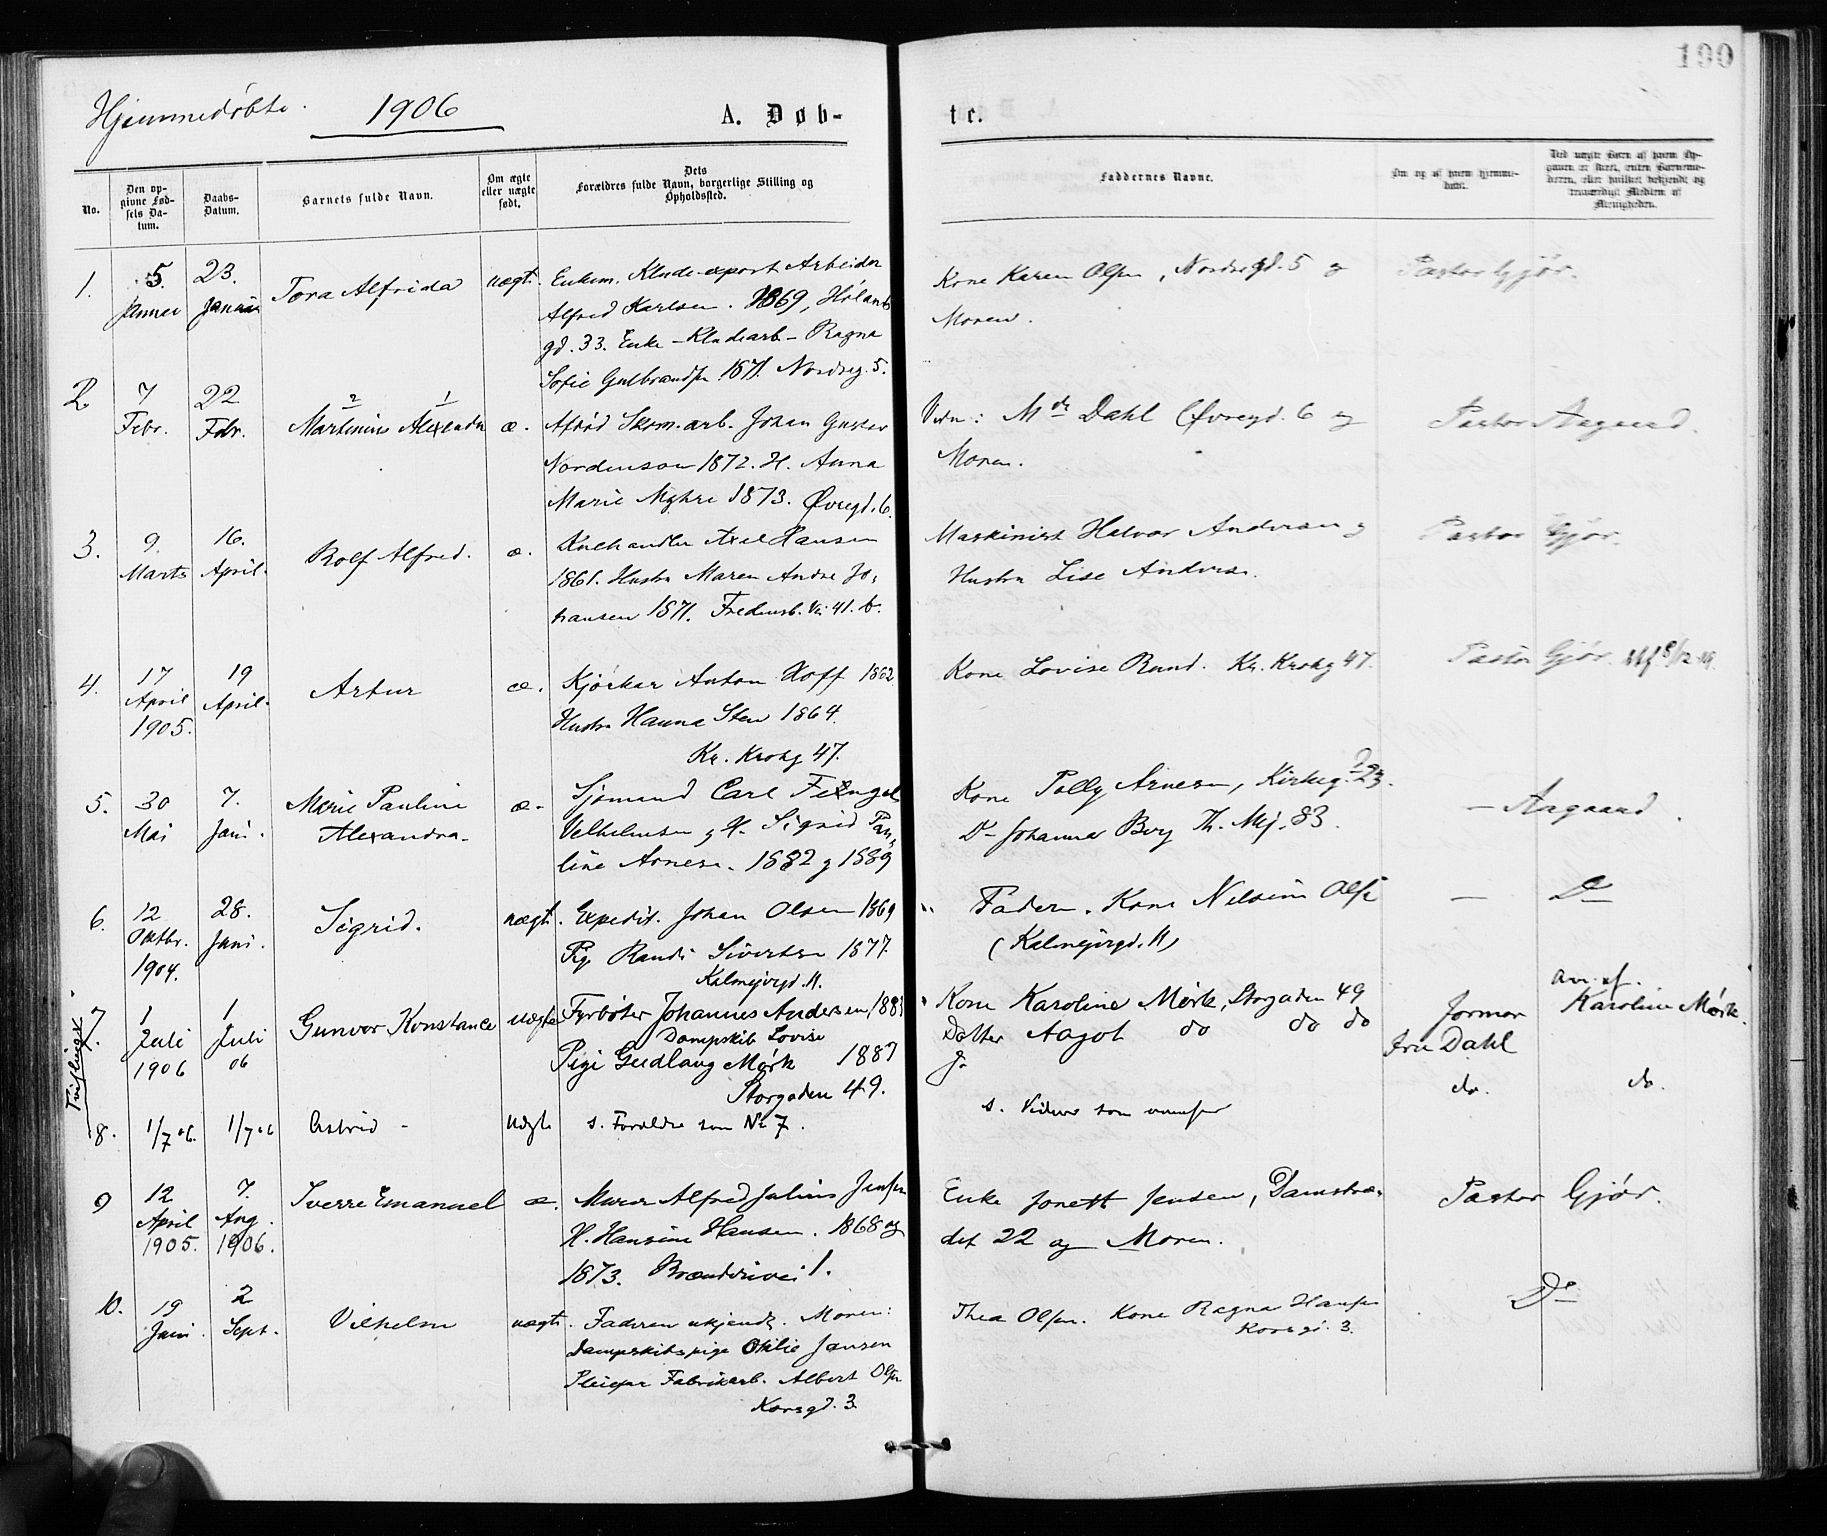 190
Hjemmedøbte. 1906 A. Døb- te.
No.
Den op-
givne Fød-
sels Da-
tum.
Daabs-
Datum.
Barnets fulde Navn.
Om ægte
eller uægte
født.
Dets
Forældres fulde Navn, borgerlige Stilling og
Opholdssted.
Faddernes Navne.
Om og af hvem hjemme-
døbt.
Ved uægte Børn af hvem Op-
gaven er skeet, enten Barnemo-
deren, eller hvilket bekjendt og
troværdigt Medlem af
Menigheden.
1.
5.
Januar
23.
Januar
Tora Alfrida
uægt.
Enkem. Klude-export Arbeider
Alfred Karlsen. 1869,
gd. 33. Enke - Kludearb - Ragna
Sofie Gulbrandsn 1871. Nordreg. 5.
Kone Karen Olsen, Nordregd. 5 og
Moren.
Pastor Gjør.
2.
7
Febr.
22
Febr.
2 1
Martinius Alexander
æ.
Afdød Skom. arb. Johan Gustav
Nordenson 1872. H. Anna
Marie Myhre 1873. Øvregd. 6.
Vidn: Mde Dahl Øvregd. 6 og
Moren.
Pastor Aagaard.
3.
9.
Marts
16.
April.
Rolf Alfred.
æ.
Kulhandler Axel Hansen
1861. Hustru Maren Andrea Jo-
hansen 1871. Fredensb. Vei 41. b.
Maskinist Halvor Andersen og
Hustru Lise Andersen.
Pastor Gjør.
4.
17
April
1905.
19
April.
Artur
æ.
Anton Hoff 1862
Hustru Hanna Sten 1864.
Kr. Krohg 47.
Kone Lovise Rund. Kr. Krohg 47.
Pastor Gjør.
5.
30
Mai
7.
Juni.
Marie Pauline
Alexandra.
æ.
Sjømand Carl
Vilhelmsen og H. Sigrid Pau-
line Arnesen. 1882 og 1889
Kone Polly Arnesen, Kirkeg. 23.
Do Johanna Berg Th. Mej. 83.
— Aagaard.
6.
12
Oktbr.
1904.
28.
Juni.
Sigrid.
uægt.
Expedit. Johan Olsen 1869
Pige Randi Sivertsen 1877.
Kalmejergd. 11.
Faderen. Kone Nilsine Olsen
(Kalmejergd. 11)
— Do
Tvillinger
7.
1
Juli
1906
1
Juli
06
Gunvor Konstance
uægte
Fyrbøter Johannes Andersen, 1883
Dampskib Lovise
Pige Gudlaug Mørk 1887
Storgaden 49.
Kone Karoline Mørk, Storgaden 49
Datter Aagot do do do
Jormor
Fru Dahl
anm. af.
Karoline Mørk.
8.
1/7 06.
1/7 06
Astrid -
uægte
s. Forældre som No 7.
s. Vidner som ovenfor
do. do.
9
12
April
1905.
7.
Aug.
1906.
Sverre Emanuel
æ.
Murer Alfred Julius Jensen
H. Hansine Hansen. 1868 og
1873. Brænderivei 1.
Enke Jonett Jensen, Damstræ-
det 22 og Moren.
Pastor Gjør.
10.
19
Juni.
2
Sept.
Vilhelm
uægte.
Faderen ukjendt. Moren:
Dampskibspige Otilie Jansen
Pleiefar Fabrikarb. Albert Olsen
Korsgd. 3.
Thea Olsen. Kone Ragna Hansen
Korsgd. 3.
Do